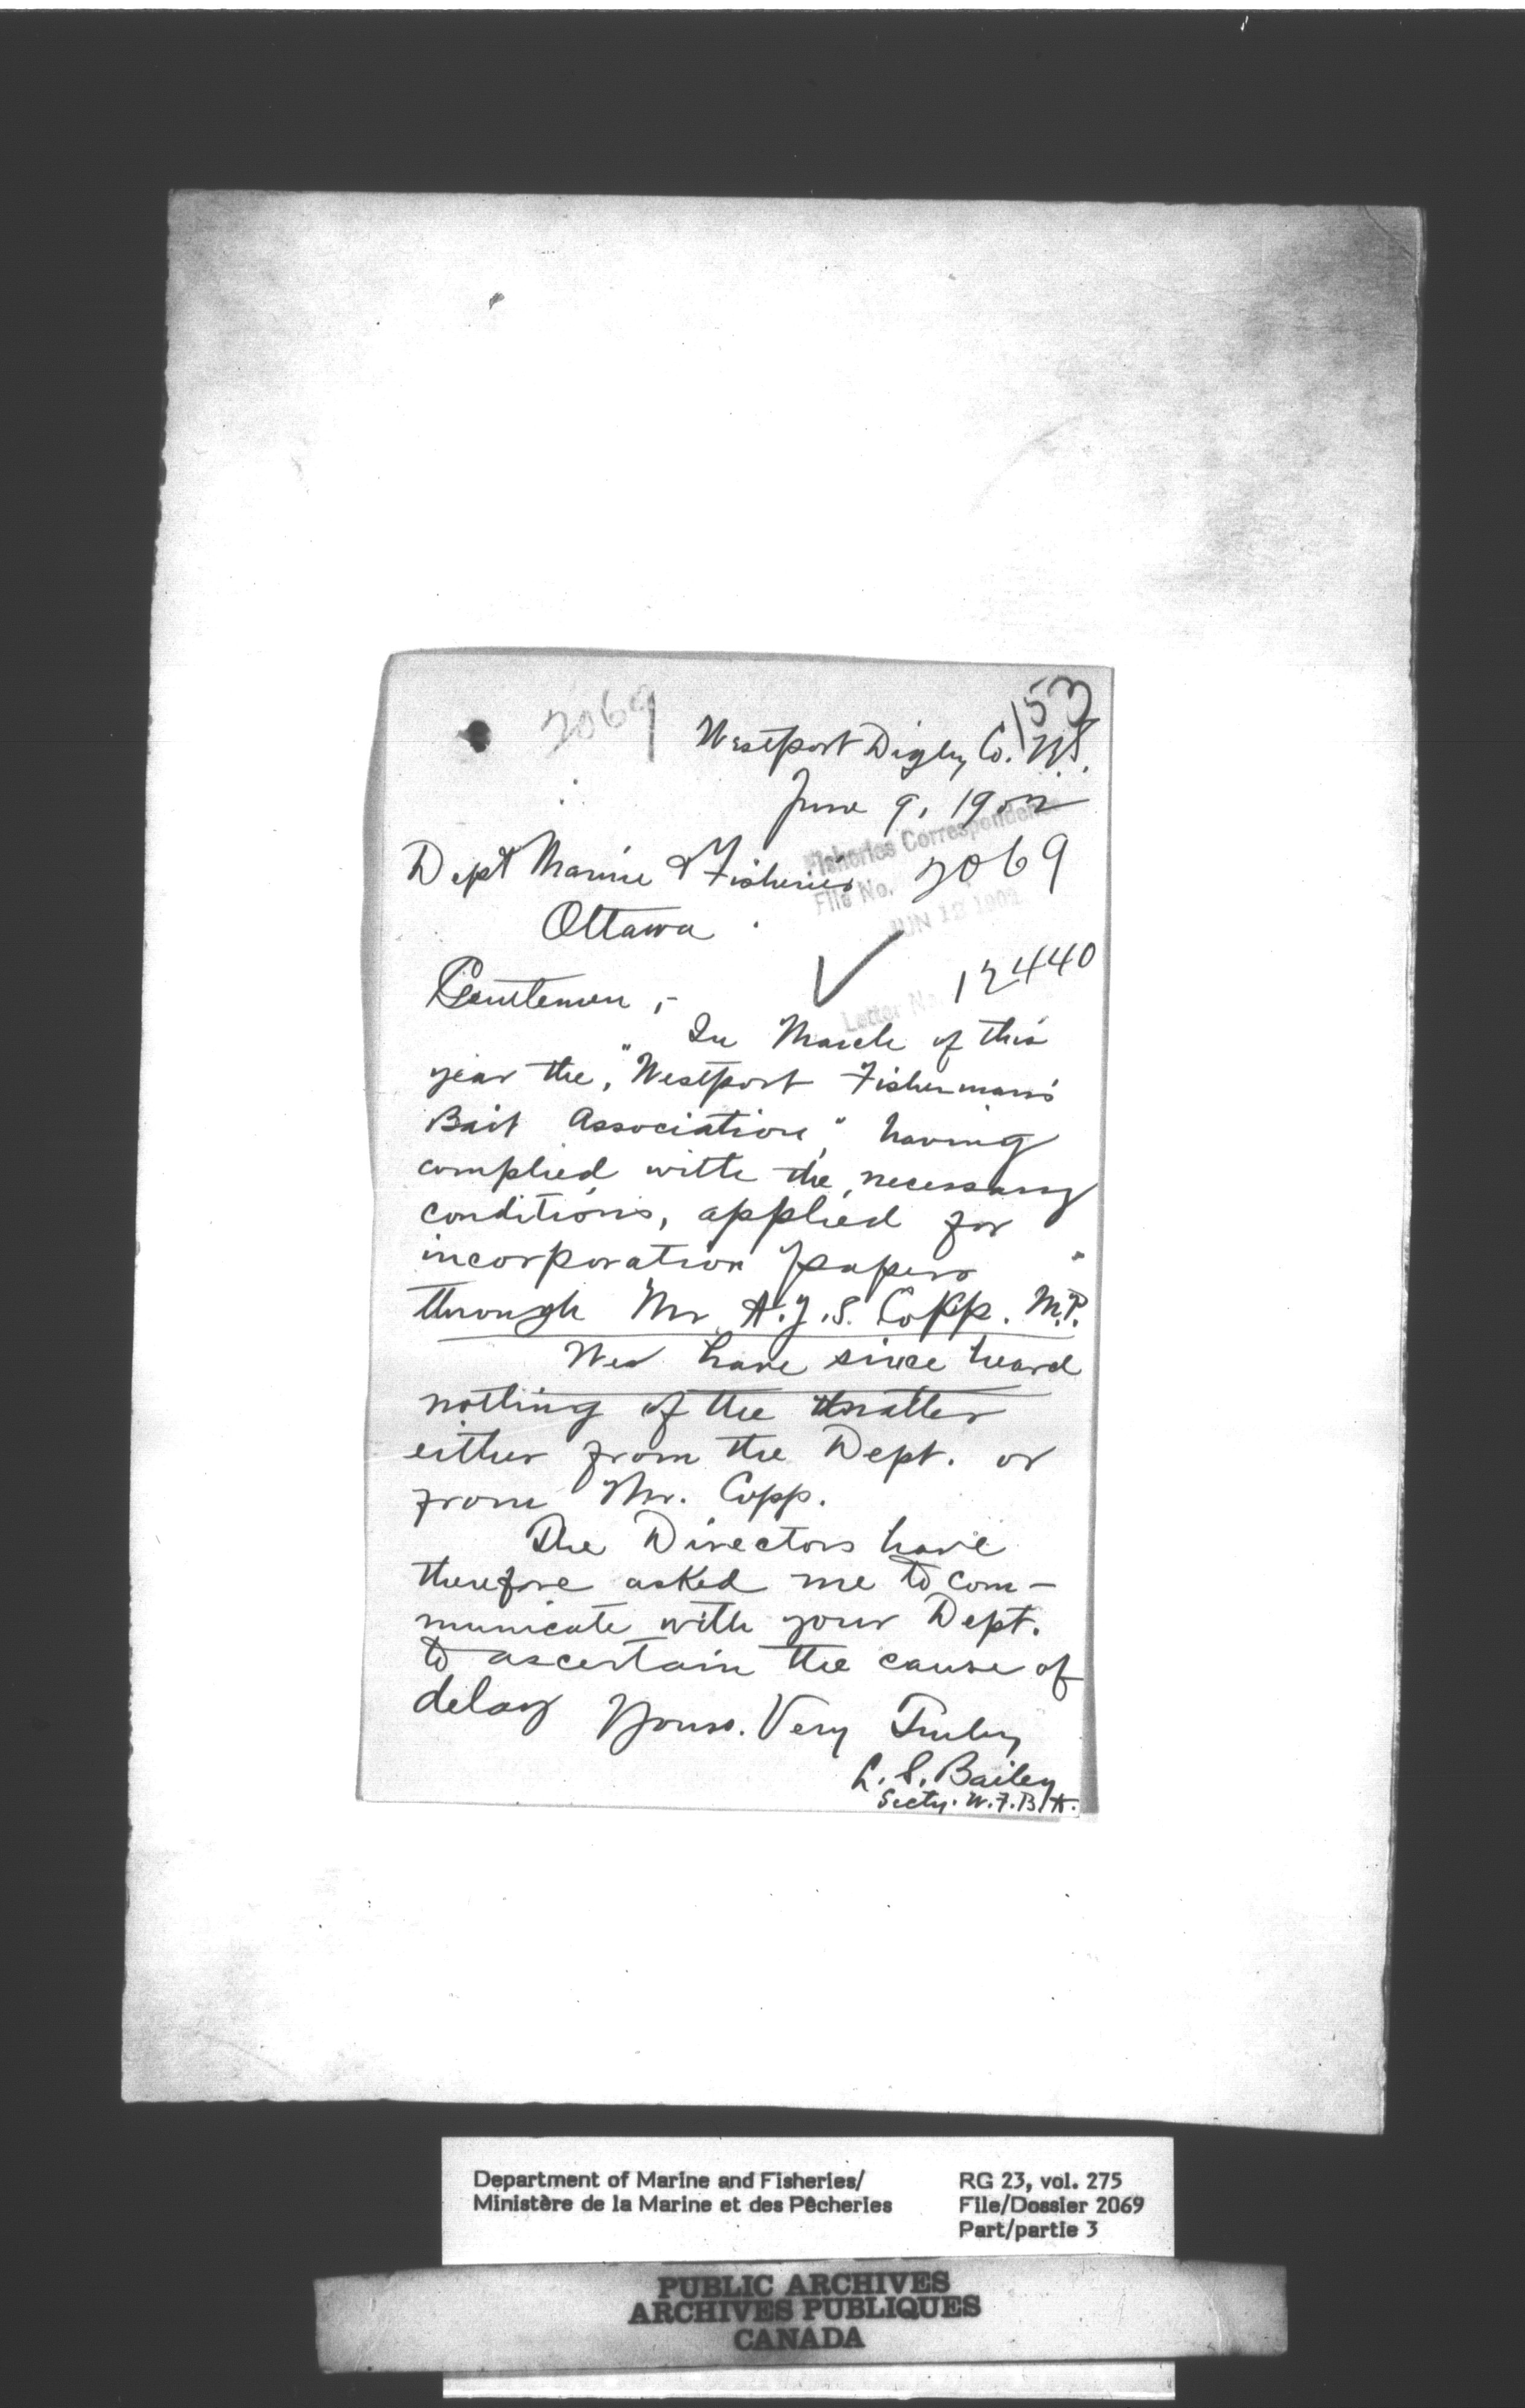 153
2069
Westport Digby Co. N.S.
June 9, 1902
Fisheries Correspondence
Dept Marine & Fisheries
File No. 2069
Ottawa
JUN 12 1902
Gentlemen,-
12440
Letter No.
In March of this
year the, "Westport Fisherman's
Bait Association," having
complied with the necessary
conditions, applied for
incorporation papers
through Mr A.J.S. Copp. M.P.
We have since heard
nothing of the matter
either from the Dept. or
from Mr. Copp.
The Directors have
therefore asked me to com-
municate with your Dept.
to ascertain the cause of
delay Yours. Very Truly
L. S. Bailey
Secty. W.F.B.A.
Department of Marine and Fisheries/
Ministère de la Marine et des Pêcheries
RG 23, vol. 275
File/Dossier 2069
Part/partie 3
PUBLIC ARCHIVES
ARCHIVES PUBLIQUES
CANADA